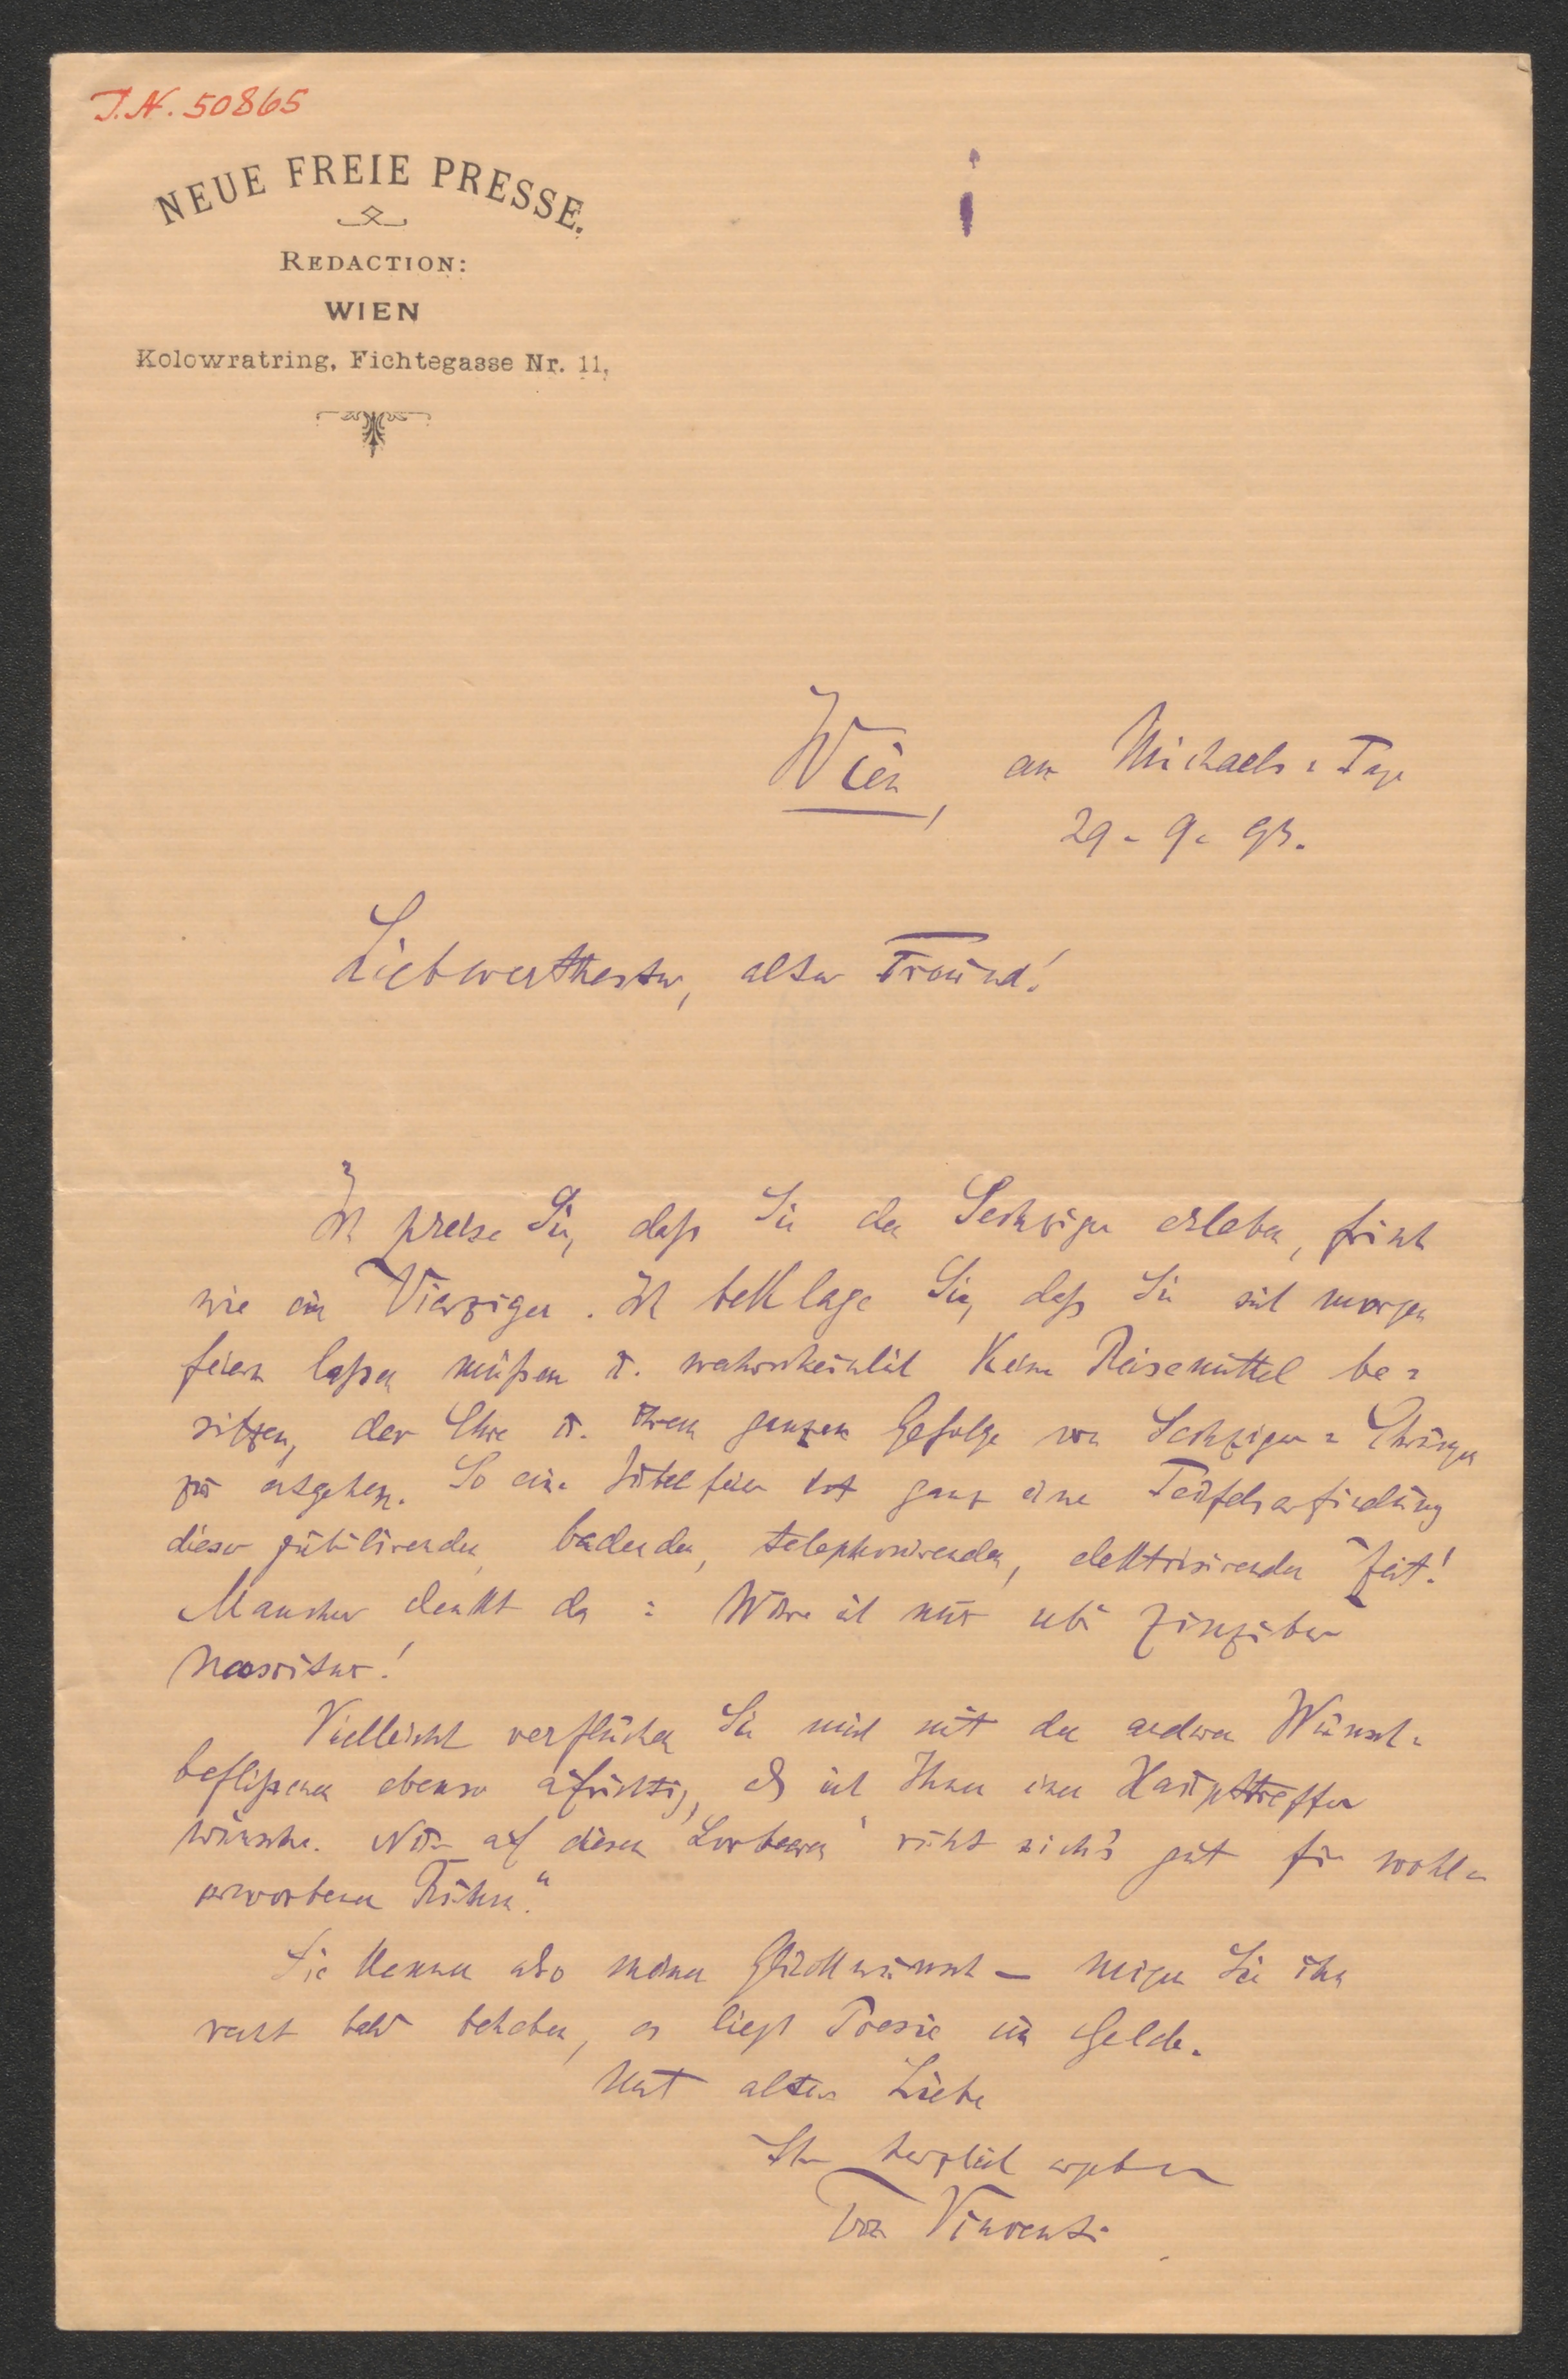 I.N. 50865
NEUE FREIE PRESSE.
REDACTION:
WIEN
Kolowratring, Fichtegasse Nr. 11.
Wien, am Michaels-Tage
29. 9. 93.
Liebwerthester, alter Freund!
Ich preise Sie, daß Sie den Sechziger erleben, frisch
wie ein Vierziger. Ich beklage Sie, daß Sie sich morgen
feiern laßen müßen u. wahrscheinlich keine Reisemittel be-
sitzen, der Ehre u. ihrem ganzen Gefolge von Sechziger-Ehrungen
zu entgehen. So eine Jubelfeier ist ganz eine Teufelserfindung
dieser jubilirenden, badenden, telephonirenden, elektrisirenden Zeit!
Mancher denkt da: Wäre ich nur ubi zinziber
nascitur!
Vielleicht verfluchen Sie mich mit den anderen Wunsch-
beflißenen ebenso aufrichtig, als ich Ihnen einen Haupttreffer
wünsche. Nur auf diesen Lorbeeren ruht sich's gut für wohl-
erworbenen Ruhm."
Sie kennen also meinen Glückwunsch – mögen Sie ihn
recht bald beheben, es liegt Poesie im Gelde.
Mit alter Liebe
Ihr herzlich ergebener
von Vincenti